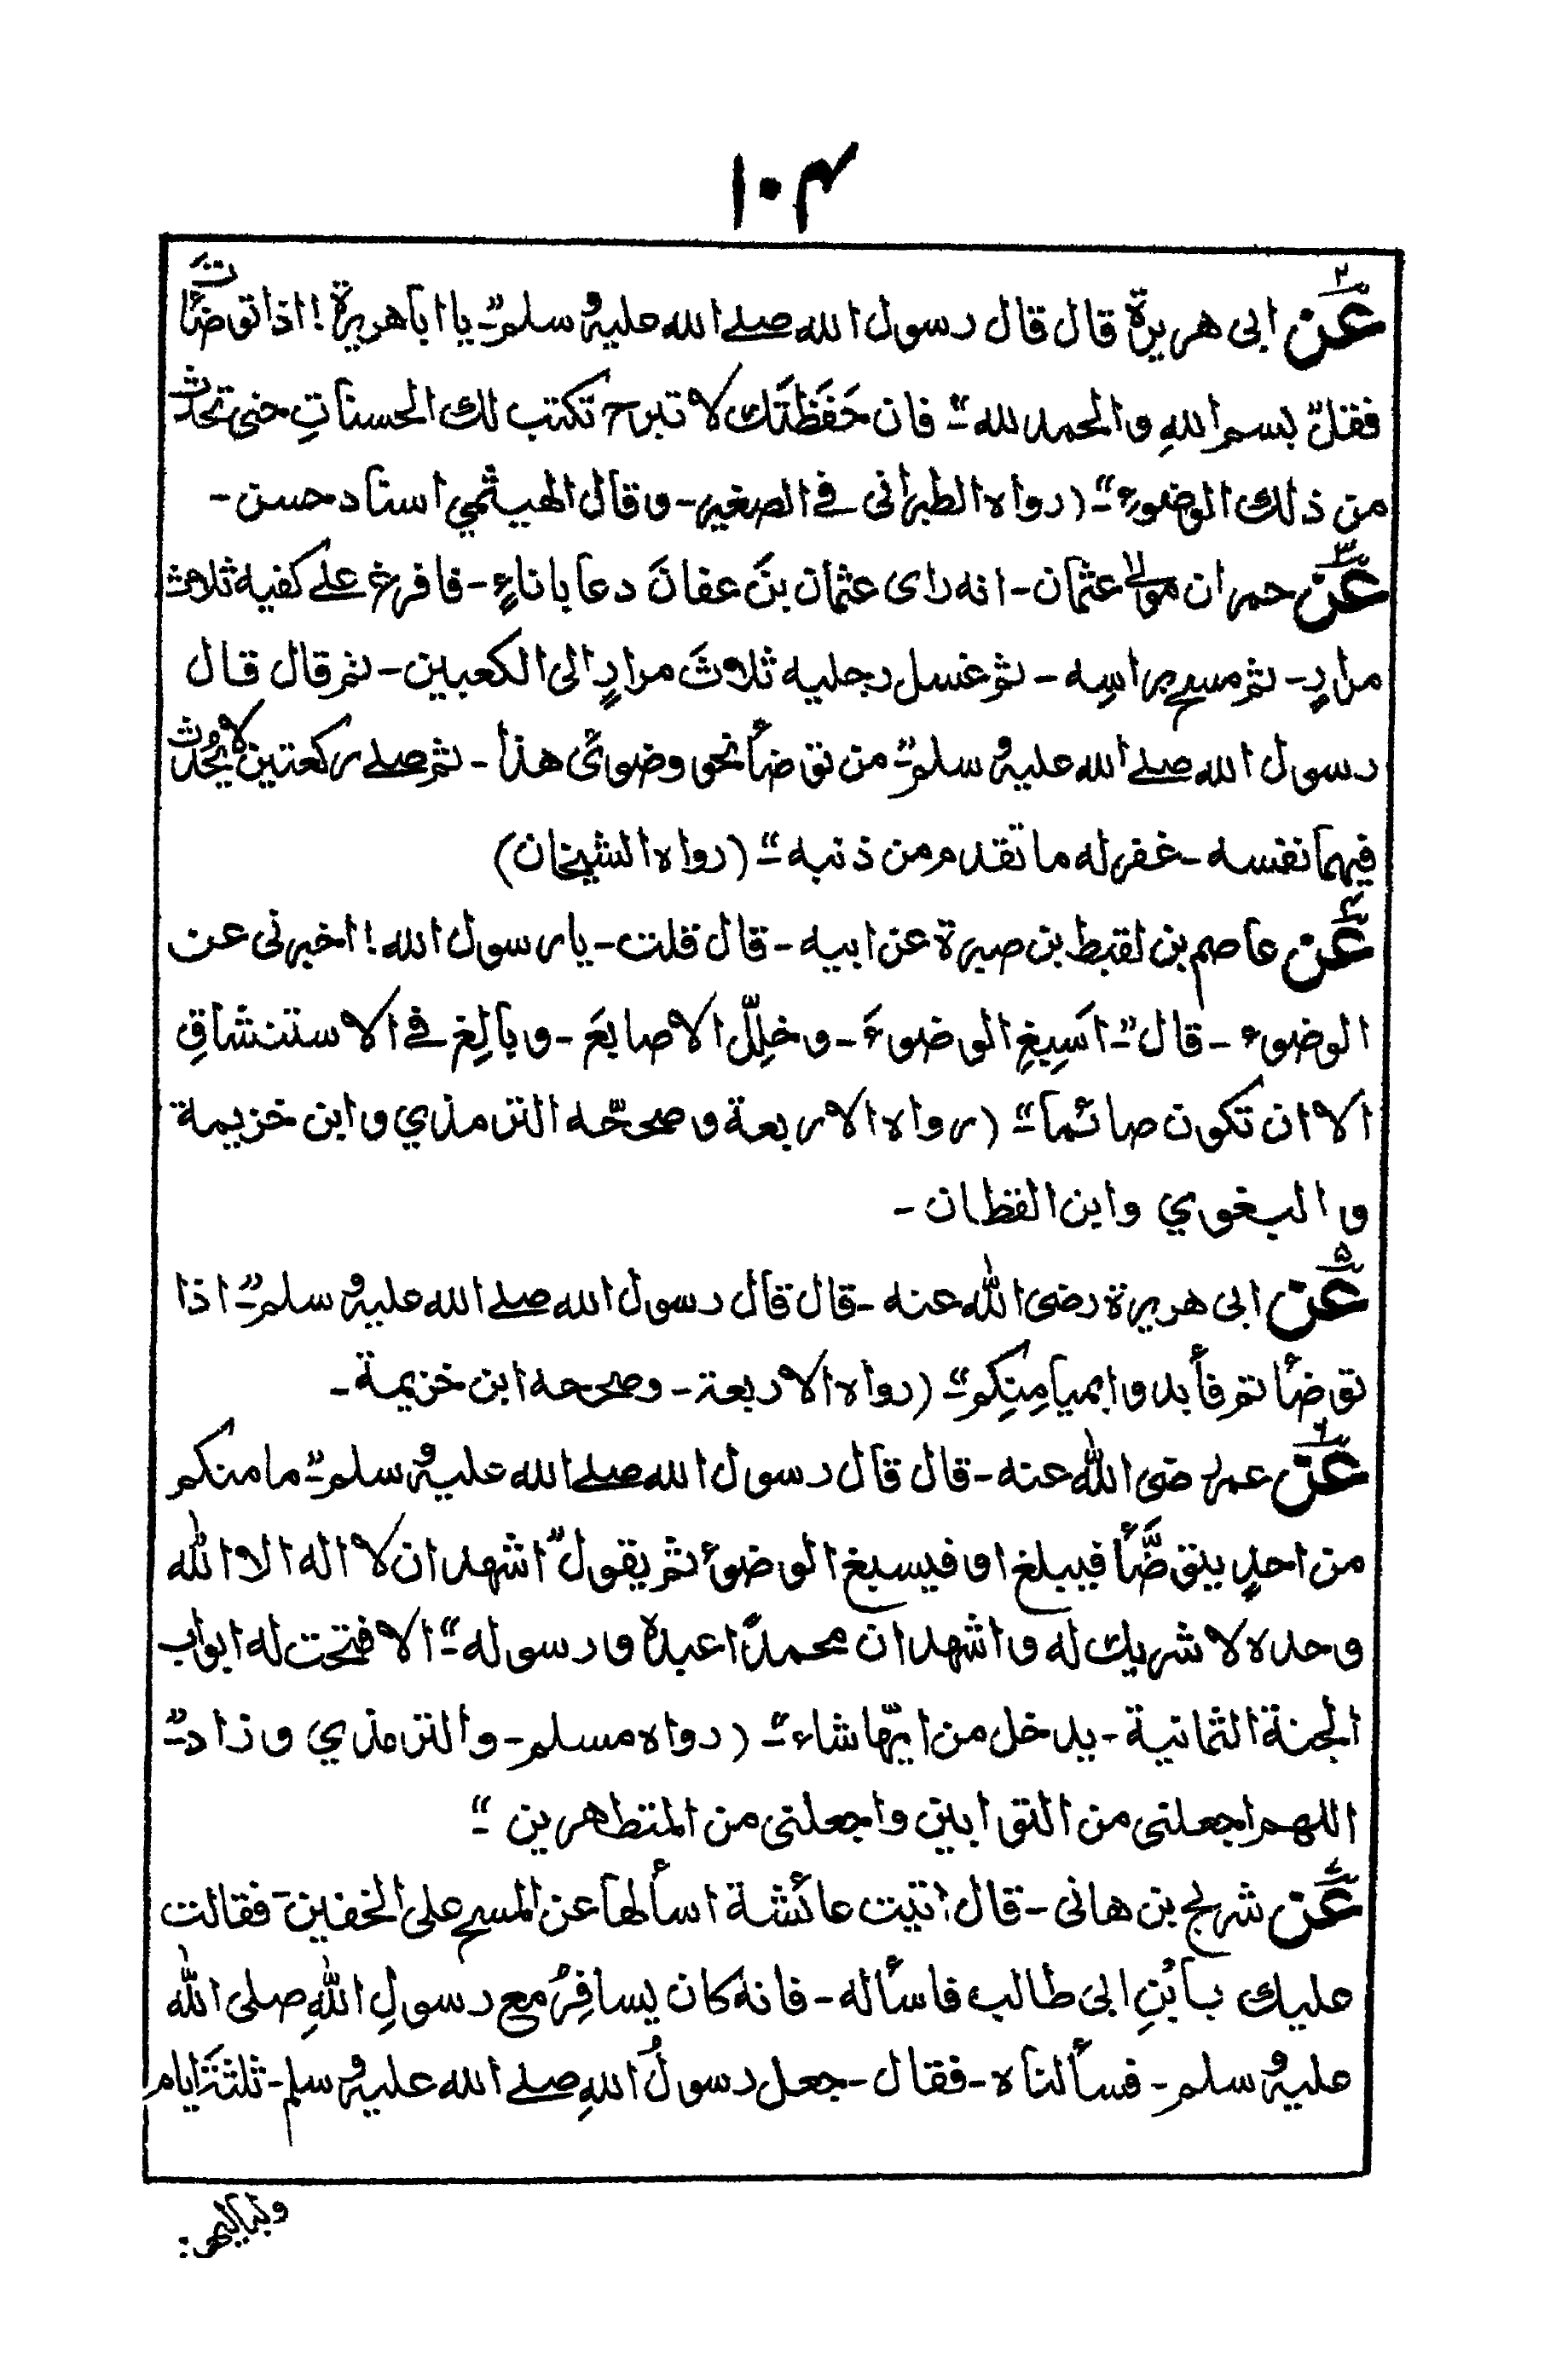 ۱۰۴
۲ عن ابی هريرة قال قال رسول الله صلے الله عليہ وسلم ”يا ابا هريرة! اذا توضأتَ
فقل ”بسم اللهِ والحمد لله“ فان حَفَظَتَك لا تبرح تكتب لك الحسناتِ حتى تحدث
من ذلك الوضوء“ (رواه الطبرانى فے الصغير۔ وقال الهيثمي اسناد حسن۔
۳ عن حمران مولےٰ عثمان۔ انه رای عثمان بنَ عفانَ دعا باناءٍ۔ فافرغ علے كفيه ثلاث
مرارٍ۔ ثم مسح براسِه۔ ثم غسل رجليه ثلاثَ مرارٍ الى الكعبين۔ ثم قال قال
رسول الله صلے الله عليہ وسلم ”من توضأ نحو وضوئى هذا۔ ثم صلے ركعتين لا يُحدث
فيهما نفسه۔ غفر له ما تقدم من ذنبه“ (رواه الشيخان)
۴ عن عاصم بن لقيط بن صبرة عن ابيه۔ قال قلت۔ يا رسول الله! اخبرنى عن
الوضوء۔ قال ”اَسبِغِ الوضوءَ۔ وخلِّل الاصابعَ۔ وبالِغ فے الاستنشاقِ
الا ان تكون صائما“ (رواه الاربعة وصححّه الترمذي وابن خزيمة
والبغوي وابن القطان۔
۵ عن ابى هريرة رضى الله عنه۔ قال قال رسول الله صلے الله عليہ وسلم ”اذا
توضأتم فأبدوا بميامِنِكم“ (رواه الاربعة۔ وصححه ابن خزيمة۔
۶ عن عمر رضى الله عنه۔ قال قال رسول الله صلے الله عليہ وسلم ”ما منكم
من احدٍ يتوضَّأ فيبلغ او فيسبغ الوضوءَ ثم يقول ”اشهد ان لا اله الا الله
وحده لا شريك له واشهد ان محمدًا عبدهٗ ورسوله“ الا فتحت له ابواب
الجنة الثمانية۔ يدخل من ايّها شاء“ (رواه مسلم۔ والترمذي وزاد ”
اللهم اجعلنى من التوابين واجعلنى من المتطهرين“
۷ عن شريح بن هانى۔ قال اتيت عائشة اسألها عن المسح على الخفين۔ فقالت
عليك بابْنِ ابى طالب فاسأله۔ فانه كان يسافِرُ مع رسولِ اللهِ صلى الله
عليہ وسلم۔ فسألناه۔ فقال۔ جعل رسولُ اللهِ صلے الله عليہ وسلم۔ ثلثةَ ايام
ولياليهن